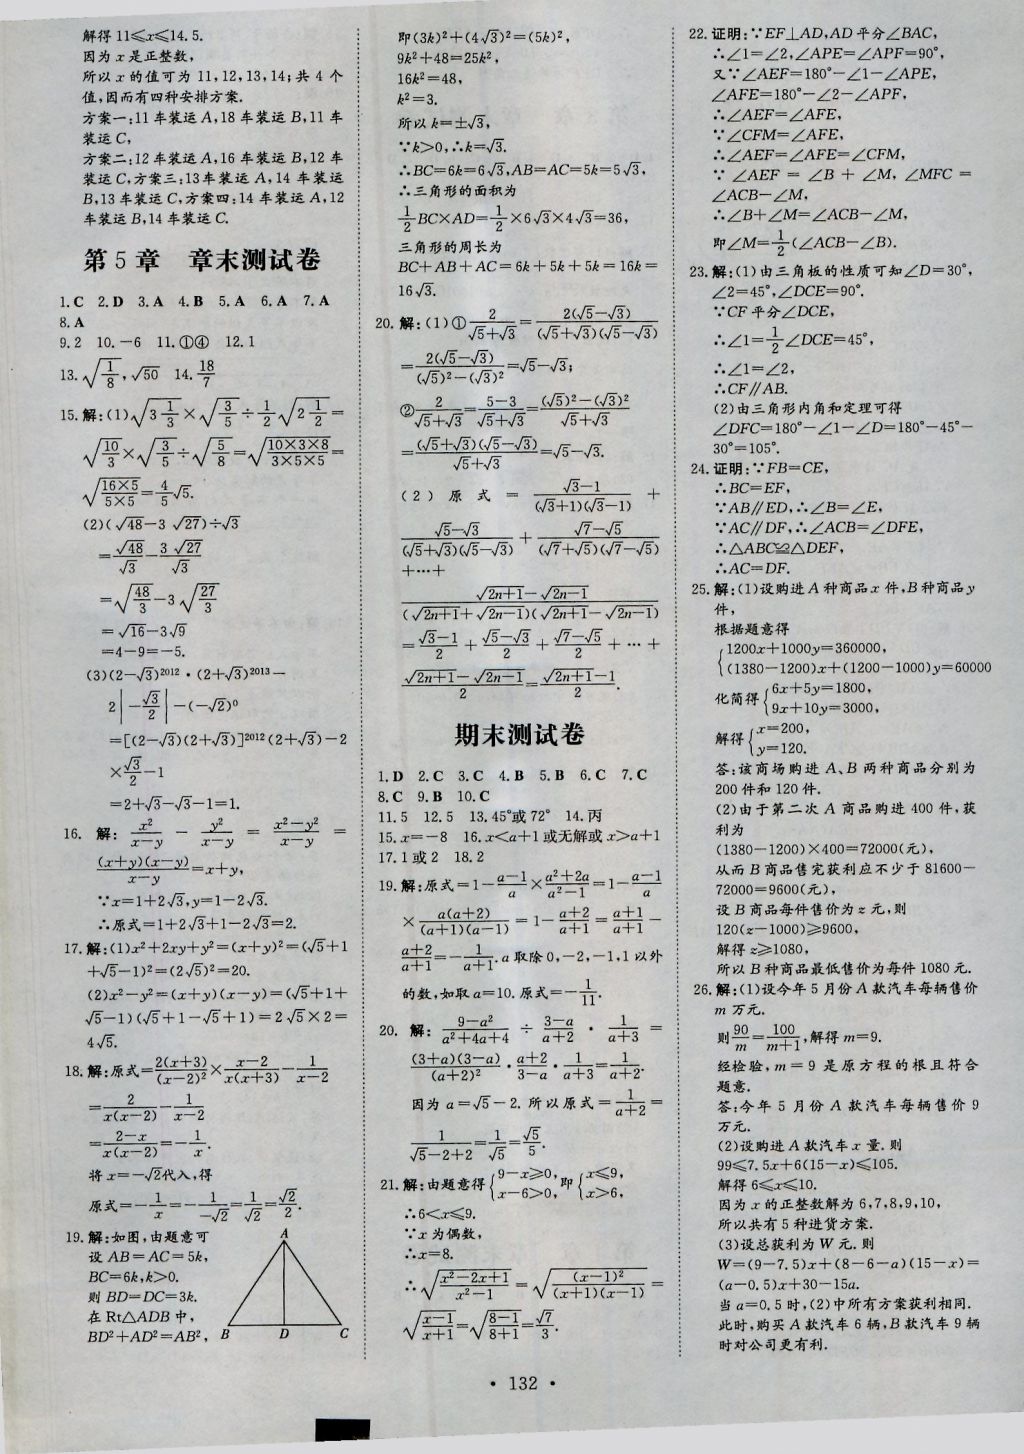 解得11≤x≤14.5.
因为x是正整数,
所以x的值可为11,12,13,14;共4个
值,因而有四种安排方案.
方案一:11车装运A,18车装运B,11车
装运C,
方案二:12车装运A,16车装运B,12车
装运C,方案三:13车装运A,14车装运
B,13车装运C,方案四:14车装运A,12
车装运B,14车装运C.
第5章 章末测试卷
1.C 2.D 3.A 4.B 5.A 6.A 7.A
8.A
9.2 10.-6 11.①④ 12.1
13.√(1/8),√50 14.18/7
15.解:(1)√(3 1/3)×√(3/5)÷1/2√(2 1/2)=
√(10/3)×√(3/5)÷√(5/8)=√((10×3×8)/(3×5×5))=
√((16×5)/(5×5))=4/5√5.
(2)(√48-3√27)÷√3
=√48/√3-3√27/√3
=√(48/3)-3√(27/3)
=√16-3√9
=4-9=-5.
(3)(2-√3)²⁰¹²·(2+√3)²⁰¹³-
2|-√3/2|-(-√2)⁰
=[(2-√3)(2+√3)]²⁰¹²(2+√3)-2
×√3/2-1
=2+√3-√3-1=1.
16. 解:x²/(x-y) - y²/(x-y) = (x²-y²)/(x-y) =
(x+y)(x-y)/(x-y)=x+y,
∵x=1+2√3,y=1-2√3.
∴原式=1+2√3+1-2√3=2.
17.解:(1)x²+2xy+y²=(x+y)²=(√5+1
+√5-1)²=(2√5)²=20.
(2)x²-y²=(x+y)(x-y)=(√5+1+
√5-1)(√5+1-√5+1)=2√5×2=
4√5.
18.解:原式=2(x+3)/(x-2)²×(x-2)/(x(x+3))-1/(x-2)
=2/(x(x-2))-1/(x-2)
=(2-x)/(x(x-2))=-1/x.
将x=-√2代入,得
原式=-1/x=-1/(-√2)=1/√2=√2/2.
19.解:如图,由题意可
设AB=AC=5k,
BC=6k,k>0.
则BD=DC=3k.
在Rt△ADB中,
BD²+AD²=AB²,
A
B D C
即(3k)²+(4√3)²=(5k)²,
9k²+48=25k²,
16k²=48,
k²=3.
所以k=±√3,
∵k>0,∴k=√3.
∴BC=6k=6√3,AB=AC=5k=5√3,
∴三角形的面积为
1/2BC×AD=1/2×6√3×4√3=36,
三角形的周长为
BC+AB+AC=6k+5k+5k=16k=
16√3.
20.解:(1)①2/(√5+√3)=2(√5-√3)/((√5+√3)(√5-√3))
=2(√5-√3)/((√5)²-(√3)²)=√5-√3;
②2/(√5+√3)=(5-3)/(√5+√3)=((√5)²-(√3)²)/(√5+√3)
=(√5+√3)(√5-√3)/(√5+√3)=√5-√3.
(2)原式=(√3-1)/((√3+1)(√3-1))+
(√5-√3)/((√5+√3)(√5-√3))+(√7-√5)/((√7+√5)(√7-√5))
+…+
(√(2n+1)-√(2n-1))/((√(2n+1)+√(2n-1))(√(2n+1)-√(2n-1)))
=(√3-1)/2+(√5-√3)/2+(√7-√5)/2+…+
(√(2n+1)-√(2n-1))/2=(√(2n+1)-1)/2.
期末测试卷
1.D 2.C 3.C 4.B 5.B 6.C 7.C
8.C 9.B 10.C
11.5 12.5 13.45°或72° 14.丙
15.x=-8 16.x<a+1或无解或x>a+1
17.1或2 18.2
19.解:原式=1-(a-1)/a×(a²+2a)/(a²-1)=1-(a-1)/a
×a(a+2)/((a+1)(a-1))=1-(a+2)/(a+1)=(a+1)/(a+1)-
(a+2)/(a+1)=-1/(a+1).a取除0,-2,-1,1以外
的数,如取a=10.原式=-1/11.
20. 解:(9-a²)/(a²+4a+4)÷(3-a)/(a+2)·1/(a+3)=
(3+a)(3-a)/(a+2)²·(a+2)/(3-a)·1/(a+3)=1/(a+2).
因为a=√5-2.所以原式=1/(a+2)=
1/(√5-2+2)=1/√5=√5/5.
21.解:由题意得{9-x≥0,x-6>0,即{x≤9,x>6,
∴6<x≤9.
∵x为偶数,
∴x=8.
∴√((x²-2x+1)/(x²-1))=√((x-1)²/((x+1)(x-1)))=
√((x-1)/(x+1))=√((8-1)/(8+1))=√7/3.
22.证明:∵EF⊥AD,AD平分∠BAC,
∴∠1=∠2,∠APE=∠APF=90°,
又∵∠AEF=180°-∠1-∠APE,
∠AFE=180°-∠2-∠APF,
∴∠AEF=∠AFE,
∵∠CFM=∠AFE,
∴∠AEF=∠AFE=∠CFM,
∵∠AEF=∠B+∠M,∠MFC=
∠ACB-∠M,
∴∠B+∠M=∠ACB-∠M,
即∠M=1/2(∠ACB-∠B).
23.解:(1)由三角板的性质可知∠D=30°,
∠2=45°,∠DCE=90°.
∵CF平分∠DCE,
∴∠1=1/2∠DCE=45°,
∴∠1=∠2,
∴CF∥AB.
(2)由三角形内角和定理可得
∠DFC=180°-∠1-∠D=180°-45°-
30°=105°.
24.证明:∵FB=CE,
∴BC=EF,
∵AB∥ED,∴∠B=∠E,
∵AC∥DF,∴∠ACB=∠DFE,
∴△ABC≌△DEF,
∴AC=DF.
25.解:(1)设购进A种商品x件,B种商品y
件,
根据题意得
{1200x+1000y=360000,
(1380-1200)x+(1200-1000)y=60000
化简得{6x+5y=1800,
9x+10y=3000,
解得{x=200,
y=120.
答:该商场购进A、B两种商品分别为
200件和120件.
(2)由于第二次A商品购进400件,获
利为
(1380-1200)×400=72000(元),
从而B商品售完获利应不少于81600-
72000=9600(元),
设B商品每件售价为z元,则
120(z-1000)≥9600,
解得z≥1080,
所以B种商品最低售价为每件1080元.
26.解:(1)设今年5月份A款汽车每辆售价
m万元.
则90/m=100/(m+1),解得m=9.
经检验,m=9是原方程的根且符合
题意.
答:今年5月份A款汽车每辆售价9
万元.
(2)设购进A款汽车x量.则
99≤7.5x+6(15-x)≤105.
解得6≤x≤10.
因为x的正整数解为6,7,8,9,10,
所以共有5种进货方案.
(3)设总获利为W元.则
W=(9-7.5)x+(8-6-a)(15-x)=
(a-0.5)x+30-15a.
当a=0.5时,(2)中所有方案获利相同.
此时,购买A款汽车6辆,B款汽车9辆
时对公司更有利.
·132·